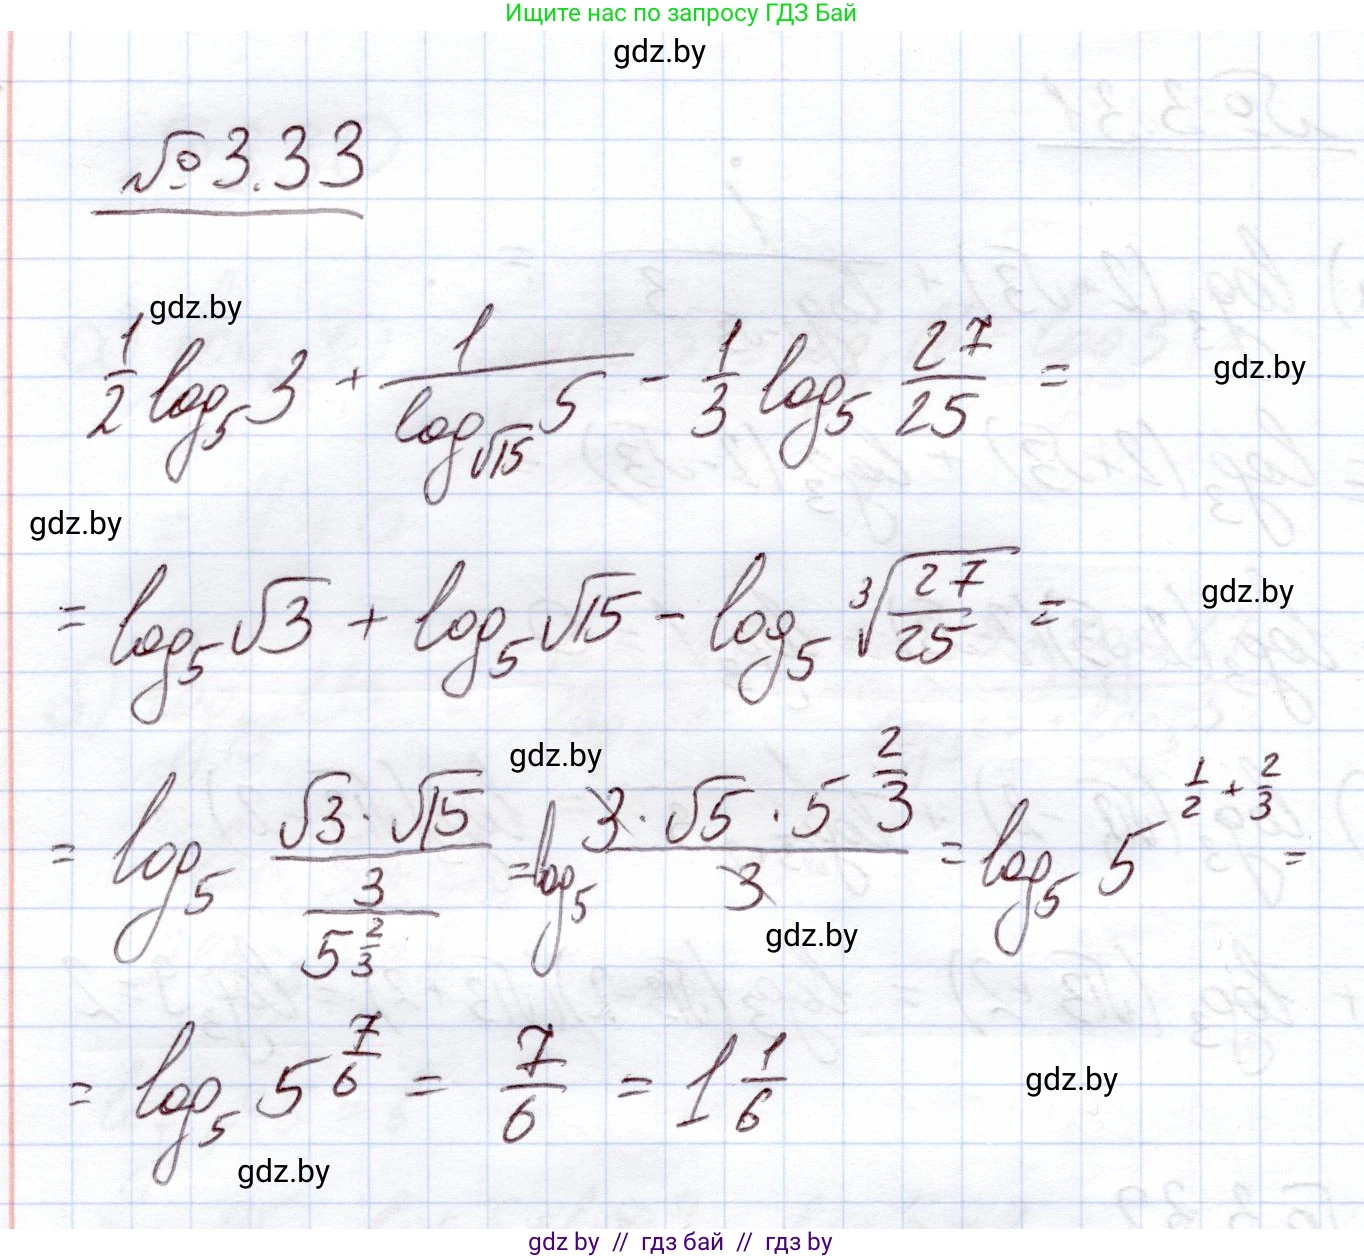 Ищите нас по запросу ГДЗ Бай
gdz.by
№ 3.33
gdz.by
1/2 log₅ 3 + 1/(log_√15 5) - 1/3 log₅ 27/25 =
gdz.by
gdz.by
= log₅ √3 + log₅ √15 - log₅ ∛(27/25) =
gdz.by
gdz.by
= log₅ (√3 · √15)/(3/5^(2/3)) = log₅ (3 · √5 · 5^(2/3))/3 = log₅ 5^(1/2 + 2/3) =
gdz.by
= log₅ 5^(7/6) = 7/6 = 1 1/6
gdz.by
gdz.by
gdz.by // гдз бай // гдз by